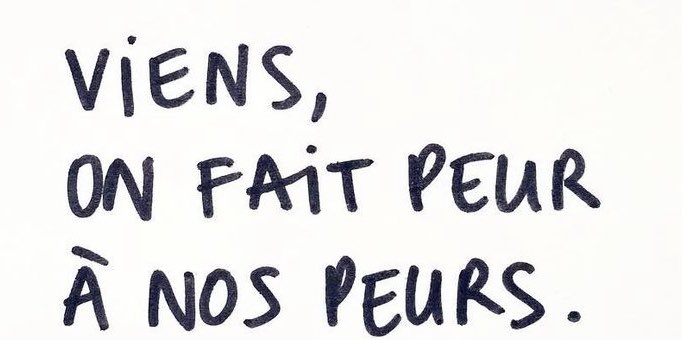 ViENS,
ON FAiT PEUR
À NOS PEURS.